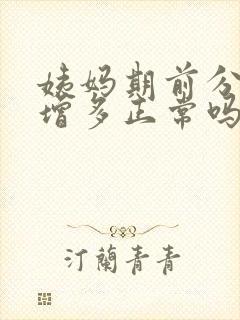 姨妈期前分
增多正常吗
汀蘭青青